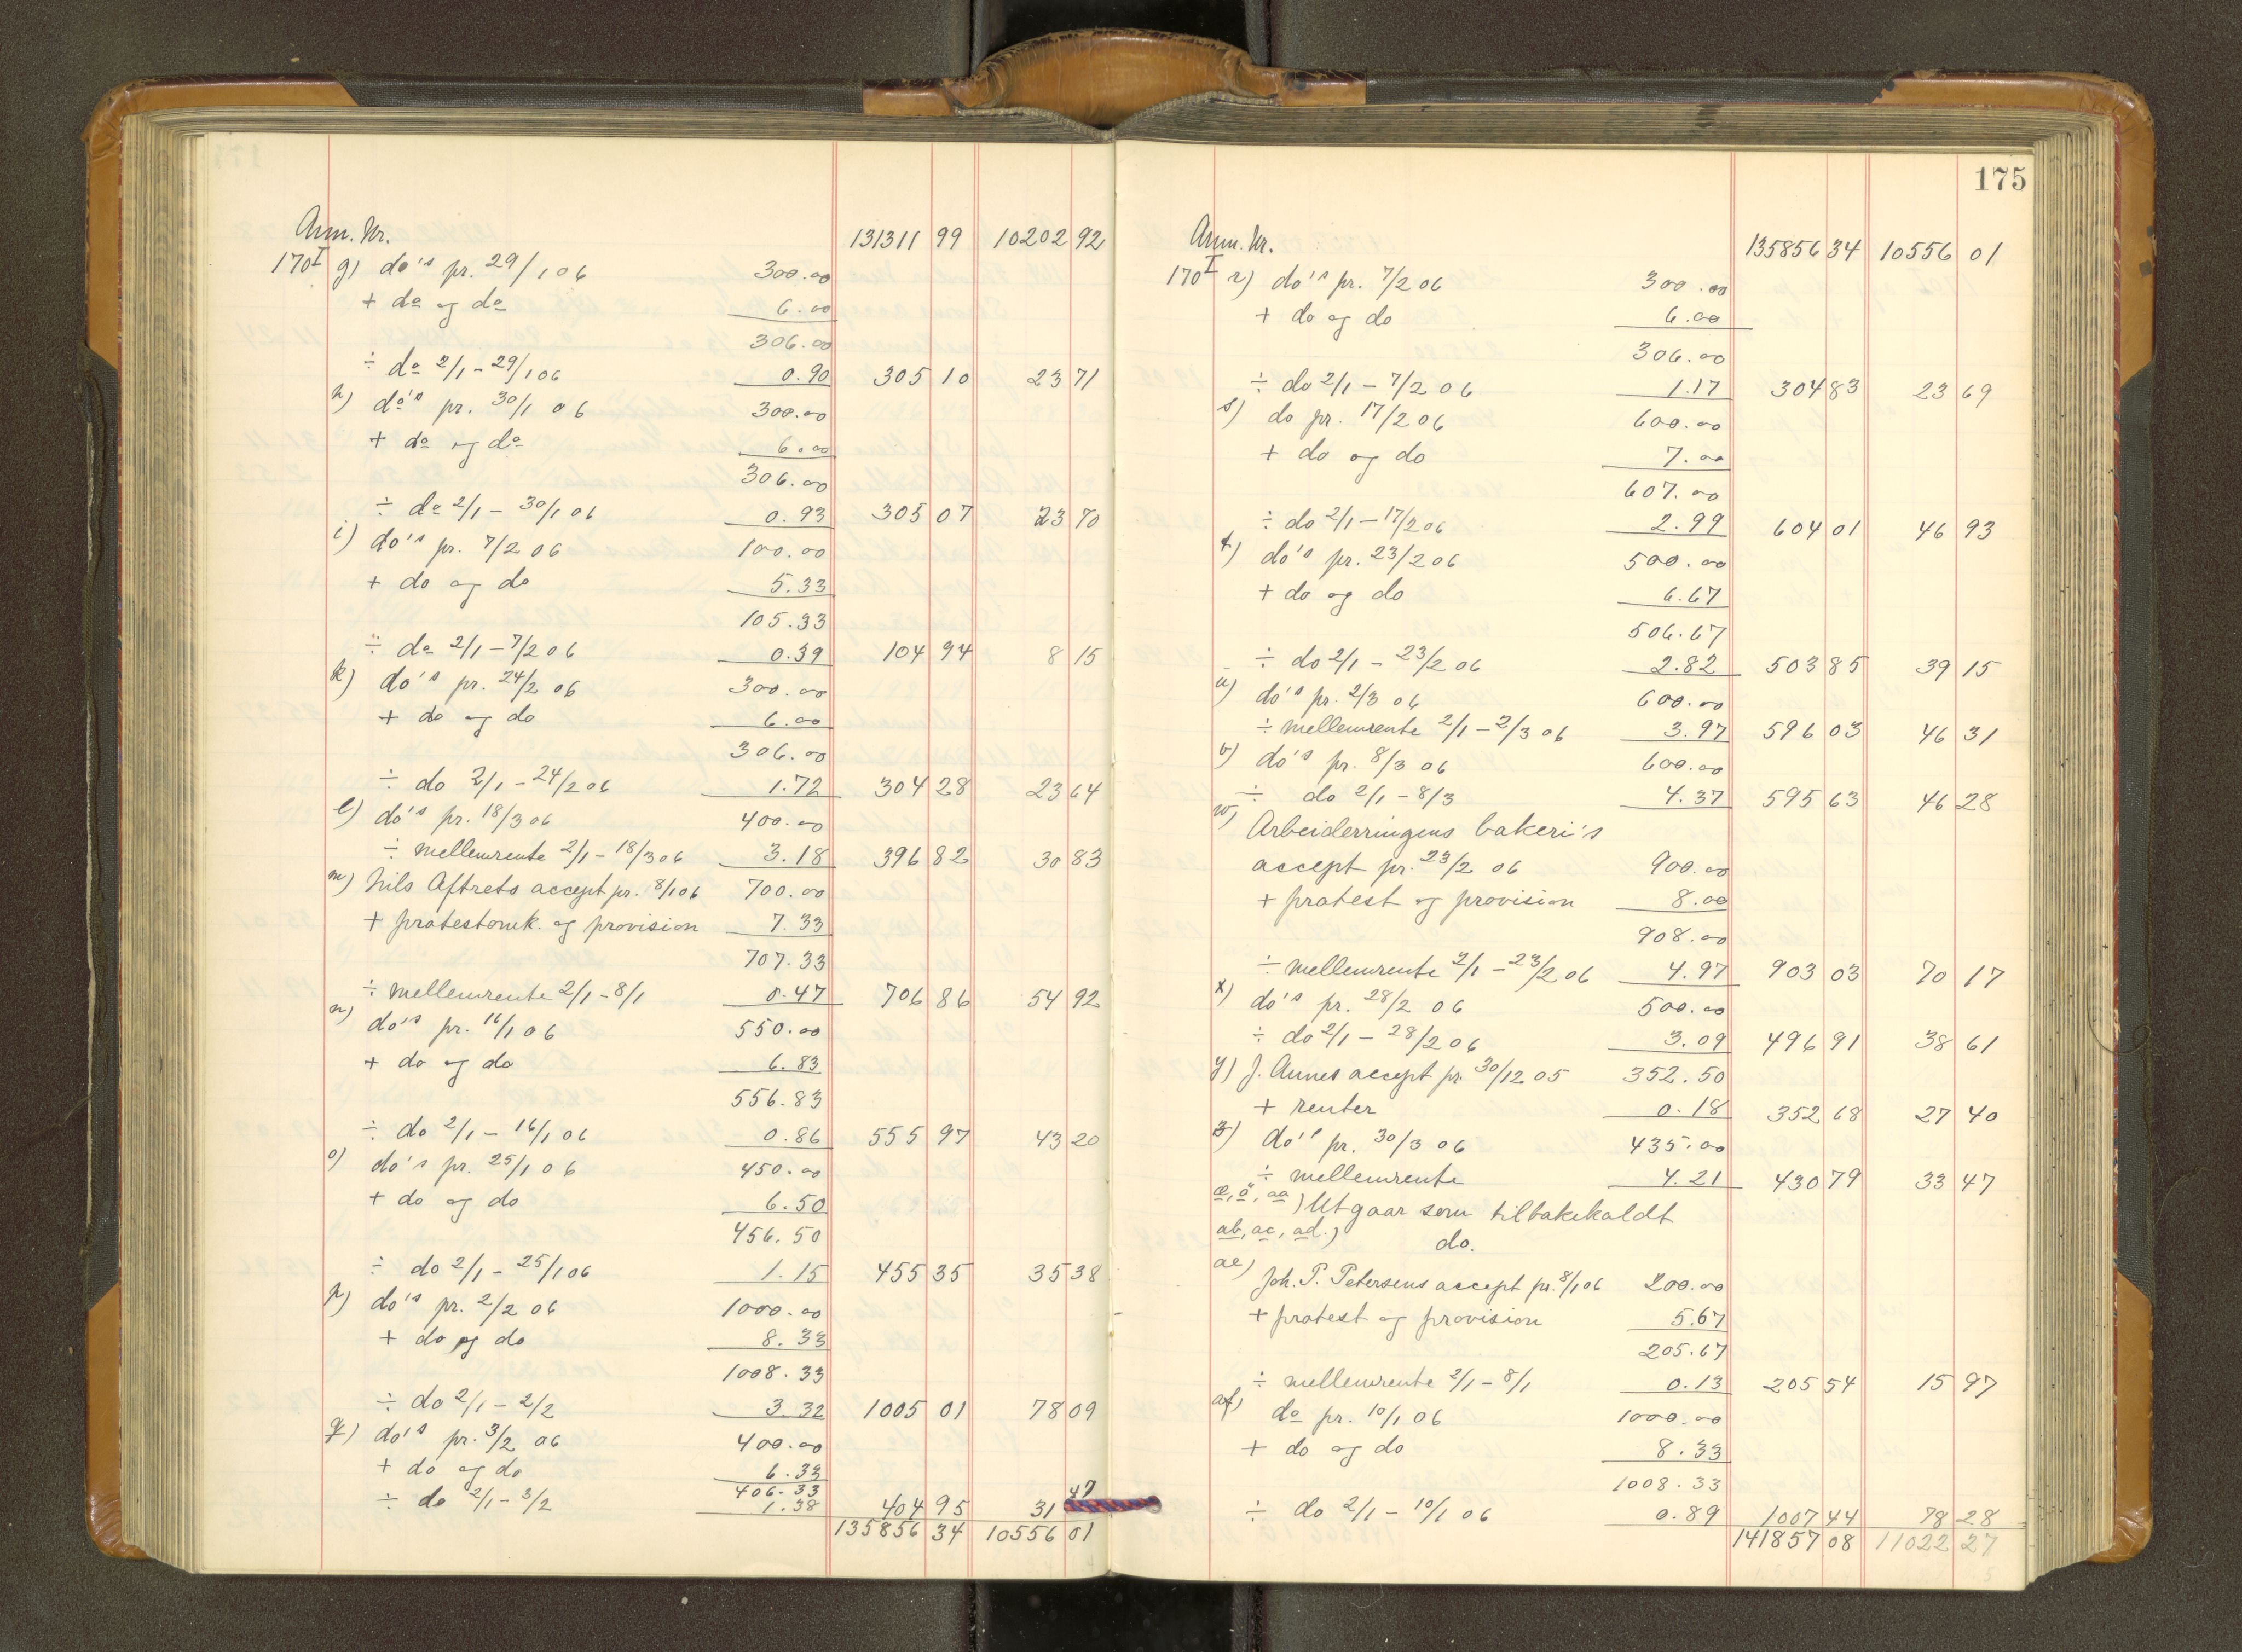 Anm. Nr. 131311 99 10202 92
170 I g) do's pr. 29/1 06 300.00
+ do og do 6.00
306.00
÷ do 2/1 - 29/1 06 0.90 305 10 23 71
h) do's pr. 30/1 06 300.00
+ do og do 6.00
306.00
÷ do 2/1 - 30/1 06 0.93 305 07 23 70
i) do's pr. 7/2 06 100.00
+ do og do 5.33
105.33
÷ do 2/1 - 7/2 06 0.39 104 94 8 15
k) do's pr. 24/2 06 300.00
+ do og do 6.00
306.00
÷ do 2/1 - 24/2 06 1.72 304 28 23 64
l) do's pr. 18/3 06 400.00
÷ mellemrente 2/1 - 18/3 06 3.18 396 82 30 83
m) Nils Aftrets accept pr. 8/1 06 700.00
+ protestomk. og provision 7.33
707.33
÷ mellemrente 2/1 - 8/1 0.47 706 86 54 92
n) do's pr. 16/1 06 550.00
+ do og do 6.83
556.83
÷ do 2/1 - 16/1 06 0.86 555 97 43 20
o) do's pr. 25/1 06 450.00
+ do og do 6.50
456.50
÷ do 2/1 - 25/1 06 1.15 455 35 35 38
p) do's pr. 2/2 06 1000.00
+ do og do 8.33
1008.33
÷ do 2/1 - 2/2 3.32 1005 01 78 09
q) do's pr. 3/2 06 400.00
+ do og do 6.33
406.33
÷ do 2/1 - 3/2 1.38 404 95 31 47
135856 34 10556 01
175
Anm. Nr. 135856 34 10556 01
170 I r) do's pr. 7/2 06 300.00
+ do og do 6.00
306.00
÷ do 2/1 - 7/2 06 1.17 304 83 23 69
s) do pr. 17/2 06 600.00
+ do og do 7.00
607.00
÷ do 2/1 - 17/2 06 2.99 604 01 46 93
t) do's pr. 23/2 06 500.00
+ do og do 6.67
506.67
÷ do 2/1 - 23/2 06 2.82 503 85 39 15
u) do's pr. 2/3 06 600.00
÷ mellemrente 2/1 - 2/3 06 3.97 596 03 46 31
v) do's pr. 8/3 06 600.00
÷ do 2/1 - 8/3 4.37 595 63 46 28
w) Arbeiderringens bakeri's
accept pr. 23/2 06 900.00
+ protest og provision 8.00
908.00
÷ mellemrente 2/1 - 23/2 06 4.97 903 03 70 17
x) do's pr. 28/2 06 500.00
÷ do 2/1 - 28/2 06 3.09 496 91 38 61
y) J. Aunes accept pr. 30/12 05 352.50
+ renter 0.18 352 68 27 40
z) do's pr. 30/3 06 435.00
÷ mellemrente 4.21 430 79 33 47
æ, ö, aa) Utgaar som tilbakekaldt
ab, ac, ad.) do.
ae)
Joh. P. Petersens accept pr. 8/1 06 200.00
+ protest og provision 5.67
205.67
÷ mellemrente 2/1 - 8/1 0.13 205 54 15 97
af) do pr. 10/1 06 1000.00
+ do og do 8.33
1008.33
÷ do 2/1 - 10/1 06 0.89 1007 44 78 28
141857 08 11022 27